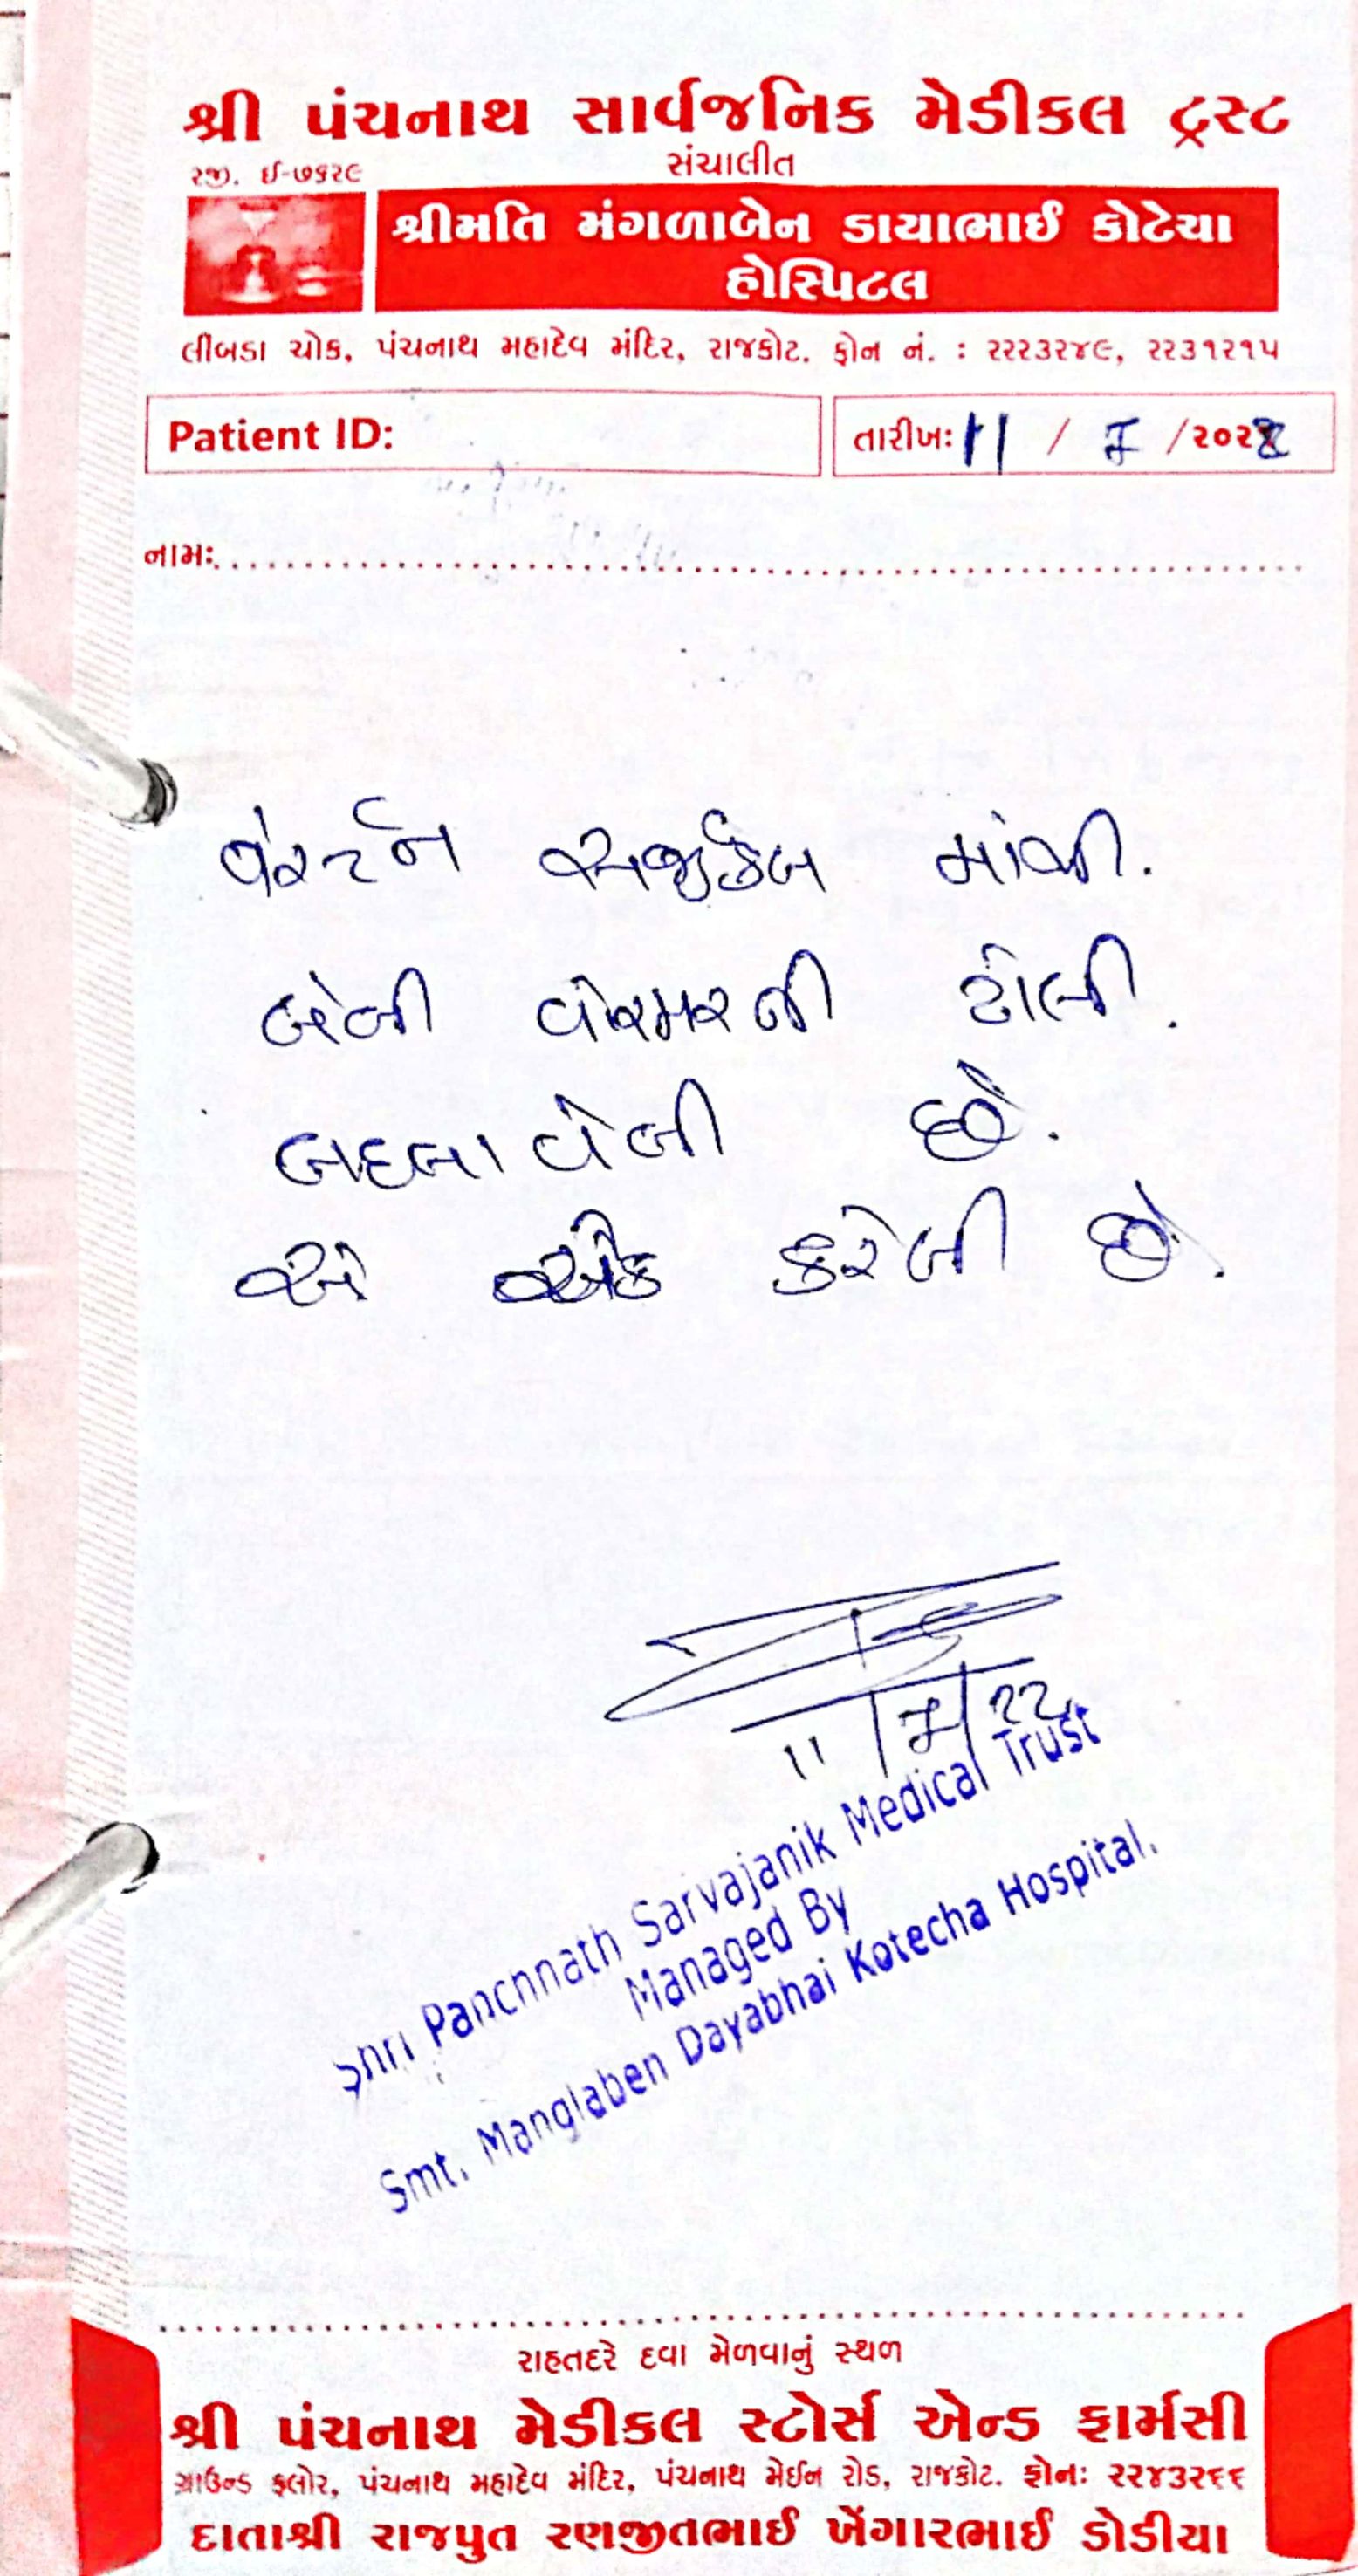 શ્રી પંચનાથ સાર્વજનિક મેડીકલ ટ્રસ્ટ
રજી. ઈ-૭૬૨૯
સંચાલીત
શ્રીમતિ મંગળાબેન ડાયાભાઈ કોટેચા
હોસ્પિટલ
લીબડા ચોક, પંચનાથ મહાદેવ મંદિર, રાજકોટ. ફોન નં. : ૨૨૨૩૨૪૯, ૨૨૩૧૨૧૫
Patient ID:
તારીખઃ 11 / 7 /૨૦૨૨
નામઃ
વેસ્ટર્ન સર્જીકલ માંથી.
બેબી વોરમરની ટ્રોલી.
બદલાવેલી છે.
એ ચેક કરેલી છે.
11/7/22
Shri Panchnath Sarvajanik Medical Trust
Managed By
Smt. Manglaben Dayabhai Kotecha Hospital.
રાહતદરે દવા મેળવાનું સ્થળ
શ્રી પંચનાથ મેડીકલ સ્ટોર્સ એન્ડ ફાર્મસી
ગ્રાઉન્ડ ફ્લોર, પંચનાથ મહાદેવ મંદિર, પંચનાથ મેઈન રોડ, રાજકોટ. ફોનઃ ૨૨૪૩૨૬૬
દાતાશ્રી રાજપુત રણજીતભાઈ ખેંગારભાઈ ડોડીયા